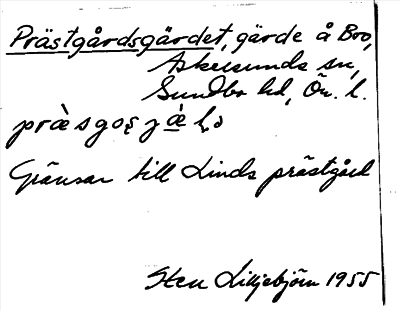 Prästgårdsgärdet, gärde å Boo,
Askersunds sn,
Sundbo hd, Ör. l.
Gränsar till Linds prästgård
Sten Lilljebjörn 1955